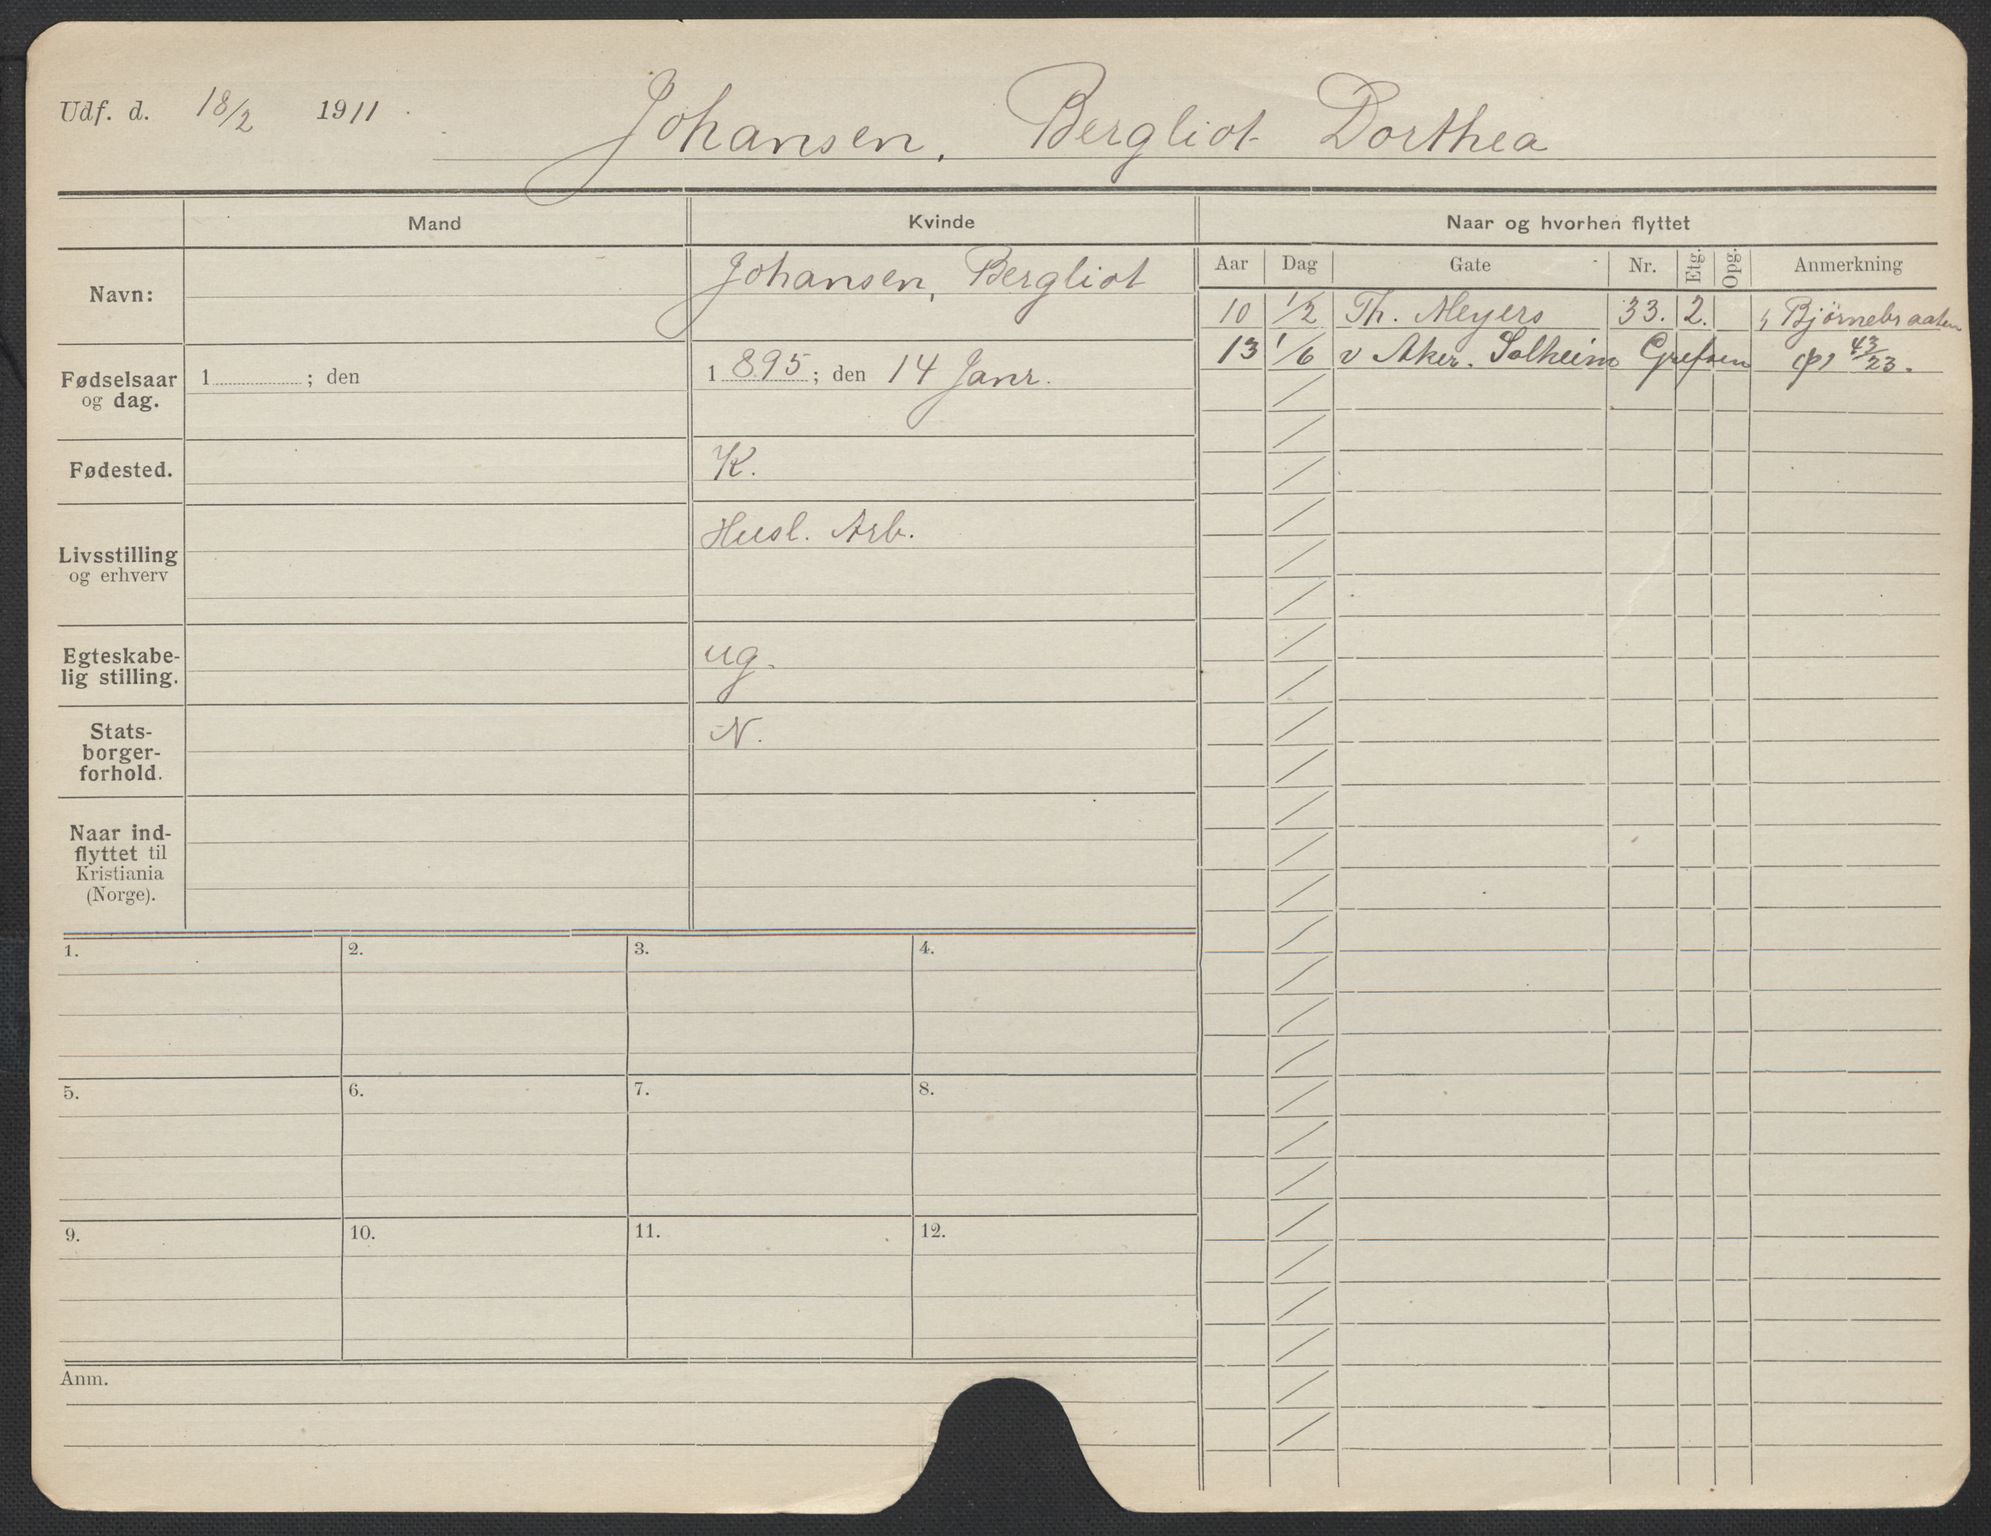 Udf. d. 18/2 1911
Johansen, Bergliot Dorthea
Mand Kvinde Naar og hvorhen flyttet
Aar Dag Gate Nr. Etg. Opg. Anmerkning
Navn: Johansen, Bergliot
10 1/2 Th. Meyers 33. 2. Bjørnebraaten
13 1/6 v Aker. Solheim Grefsen 43/23.
Fødselsaar
og dag.
1 ; den
1 895 ; den 14 Janr.
Fødested. K.
Livsstilling
og erhverv
Husl. Arb.
Egteskabe-
lig stilling.
ug.
Stats-
borger-
forhold.
N.
Naar ind-
flyttet til
Kristiania
(Norge).
1. 2. 3. 4.
5. 6. 7. 8.
9. 10. 11. 12.
Anm.